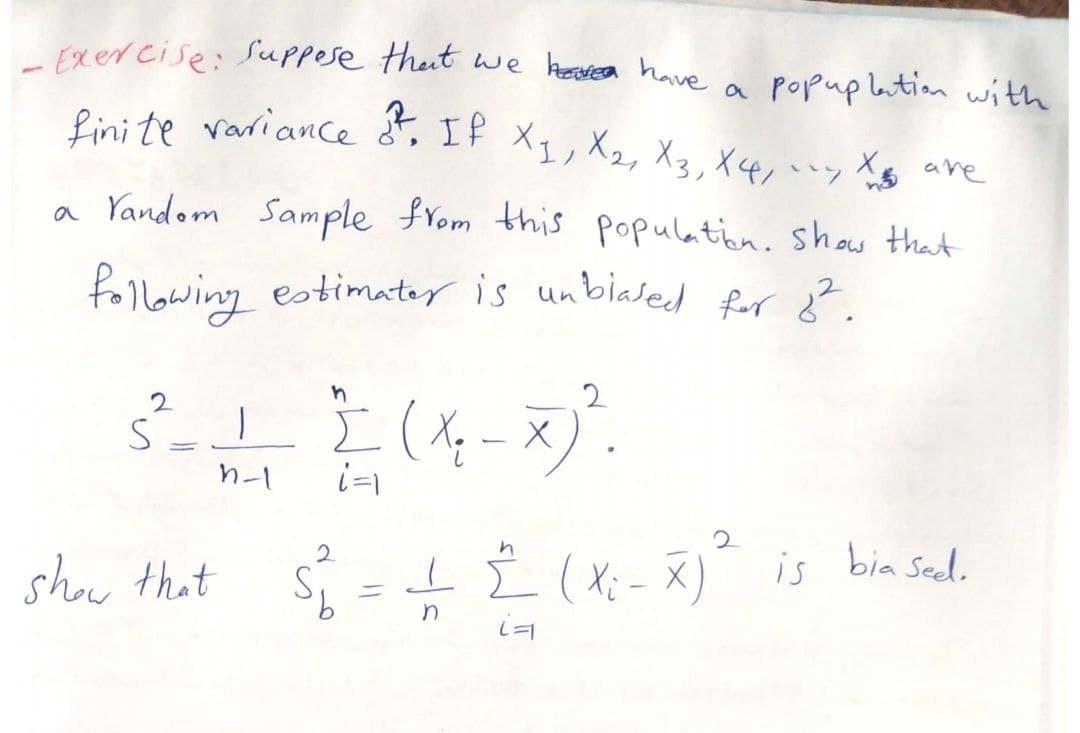 - Exercise: Suppose that we have a popuplation with
finite variance σ². If X₁, X₂, X₃, X₄, ..., Xₙ are
a random sample from this population. show that
following estimator is unbiased for σ².
S² = 1/(n-1) Σⁿᵢ₌₁ (Xᵢ - X̄)².
show that S_b² = 1/n Σⁿᵢ₌₁ (Xᵢ - X̄)² is biased.